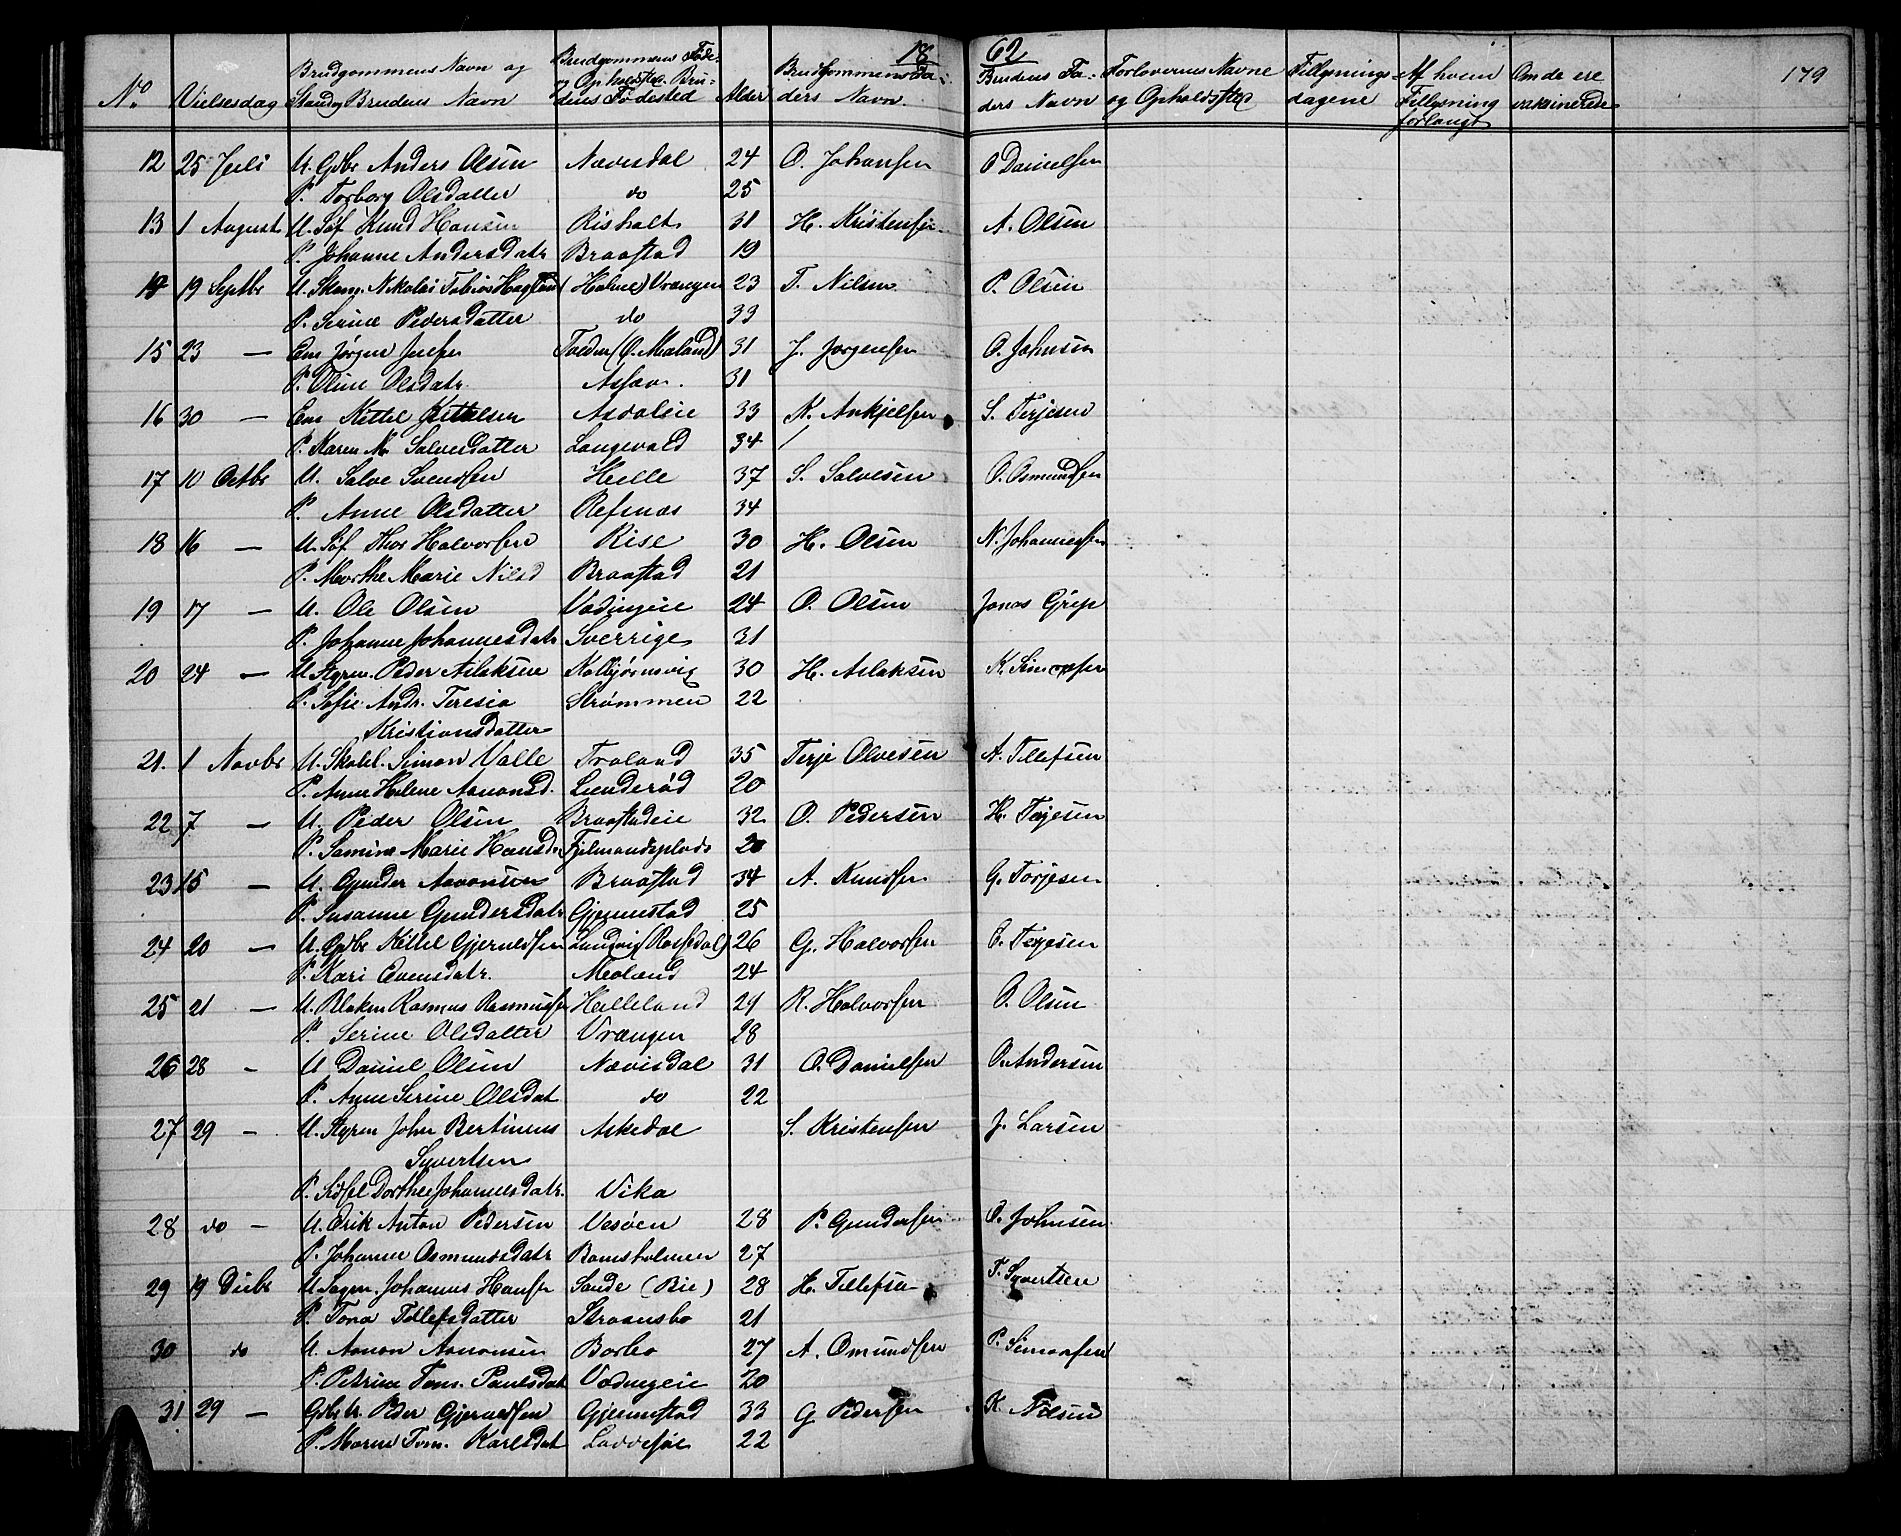 18 62
179
No Vielsesdag Brudgommens Navn og Stand og Brudens Navn Brudgommens Føde- og Opholdsstep. Brudens Fødested Alder Brudgommens Faders Navn Brudens Faders Navn Forlovernes Navne og Opholdssted Tillysningsdagene Af hvem Tillysning forlangt Om de ere vaksinerede
12 25 Juli U. Gdbr Anders Olsen Nævisdal 24 O. Johansen O Danielsen
P. Torborg Olsdatter do 25
13 1 August U. Søf Knud Hansen Risholt 31 H. Kristensen A. Olsen
P. Johanne Andersdatr Braastad 19
14 19 Septbr U. Skom. Nikolai Tobias (Holme) Vrængen 23 T. Nilsen P. Olsen
P. Serine Pedersdatter do 33
15 23 — Em Jørgen (Ø. Mæland) 31 J. Jørgensen O. Johnsen
P. Oline Olsdatr. 31
16 30 — Em Kittel Kittelsen Asdaleie 33 K. Ankjelsen S. Terjesen
P. Karen M. Salvesdatter Langevold 34 /
17 10 Octbr U. Salve Svendsen Helle 37 S. Salvesen O. Osmundsen
P. Anne Olsdatter Refsnæs 34
18 16 — U. Søf Thor Halvorsen Rise 30 H. Olsen N. Johannesen
P. Marthe Marie Nilsd Braastad 21
19 17 — U. Ole Olsen Vadingeie 24 O. Olsen Jonas Grep
P. Johanne Johannesdatr Sverrige 31
20 24 — U. Styrm. Peder Aslaksen Kolbjørnsvig 30 H. Aslaksen K. Simonsen
P. Sofie Andr. Teresia Strømmen 22
Kristiansdatter
21. 1 Novbr U. Skolel. Simon Valle Traland 35 Terje Olvesen A. Tellefsen
P. Anne Helene Aanonsd. Lunderød 20
22 7 — U. Peder Olsen Braastadeie 32 O. Pedersen H. Terjesen
P. Samine Marie Hansd. 20
23 15 — U. Gunder Aanonsen Braastad 34 A. Knudsen G. Torjesen
P. Susanne Gundersdatr Gjennestad 25
24 20 — U. Gdbr Kittel Gjeruldsen Lundvig (Rossedal) 26 G. Halvorsen O. Terjesen
P. Kari Evensdatr. Mæland 24
25 21 — U. Rasmus Rasmussen Helleland 29 R. Halvorsen O. Olsen
P. Serine Olsdatter Vrængen 28
26 28 — U Daniel Olsen Nævisdal 31 O. Danielsen O. Andersen
P. Anne Serine Olsdat do 22
27 29 — U. Styrm John Bertinius Askedal S. Kristensen J. Larsen
Syvertsen
P. Sidsel Dorthea Johannesdatr. Vika
28 do — U. Erik Anton Pedersen Vesøen 28 P. Gundersen O. Johnsen
P. Johanne Osmundsdatr Ramsholmen 27
29 19 Decbr U. Sagm. Johannes Hansen Sande (Bie) 28 H. Tellefsen T. Syvertsen
P. Tona Tellefsdatter Straansbo 21
30 do U. Aanon Aanonsen Borbo 27 A. Omundsen P. Simonsen
P. Petrine Tom. Paulsdat Vadingeie 20
31 29 — Gdbr U. Peder Gjeruldsen Gjennestad 33 G Pedersen K. Nilsen
P. Maren Tom. Karlsdat Laddefæl 22